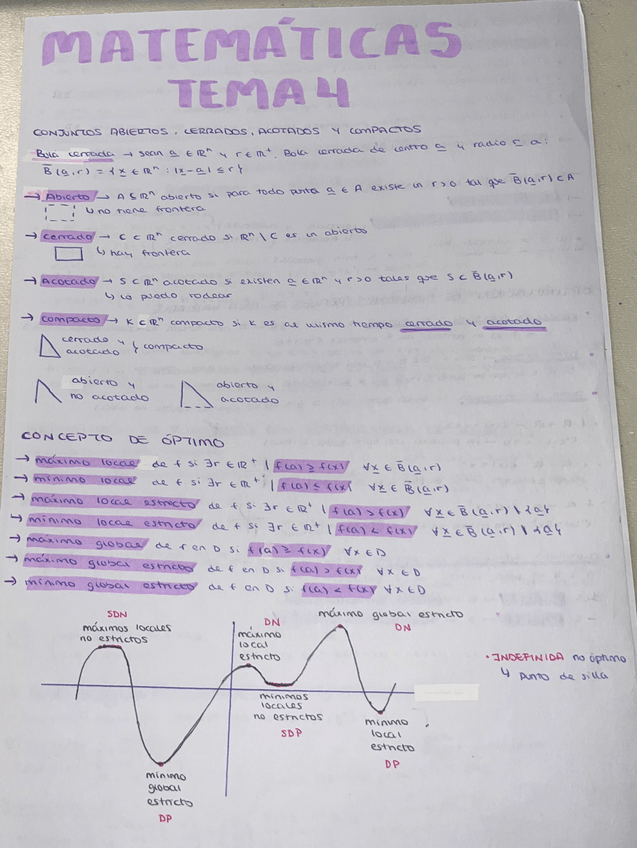 MATEMÁTICAS
TEMA 4
CONJUNTOS ABIERTOS, CERRADOS, ACOTADOS Y COMPACTOS
Bola cerrada → sean a ∈ ℝⁿ y r ∈ ℝ⁺. Bola cerrada de centro a y radio ⊆ a:
B̄(a,r) = {x ∈ ℝⁿ : |x-a| ≤ r}
→ Abierto → A ⊆ ℝⁿ abierto si para todo punto a ∈ A existe un r>0 tal que B̄(a,r) ⊂ A
↳ no tiene frontera
→ cerrado → C ⊂ ℝⁿ cerrado si ℝⁿ \ C es un abierto
↳ hay frontera
→ Acotado → S ⊂ ℝⁿ acotado si existen a ∈ ℝⁿ y r>0 tales que S ⊂ B̄(a,r)
↳ lo puedo rodear
→ compacto → K ⊂ ℝⁿ compacto si K es al mismo tiempo cerrado y acotado
cerrado y
acotado } compacto
abierto y
no acotado
abierto y
acotado
CONCEPTO DE ÓPTIMO
→ máximo local de f si ∃r ∈ ℝ⁺ | f(a) ≥ f(x) ∀x ∈ B̄(a,r)
→ mínimo local de f si ∃r ∈ ℝ⁺ | f(a) ≤ f(x) ∀x ∈ B̄(a,r)
→ máximo local estricto de f si ∃r ∈ ℝ⁺ | f(a) > f(x) ∀x ∈ B̄(a,r) \ {a}
→ mínimo local estricto de f si ∃r ∈ ℝ⁺ | f(a) < f(x) ∀x ∈ B̄(a,r) \ {a}
→ máximo global de f en D si f(a) ≥ f(x) ∀x ∈ D
→ máximo global estricto de f en D si f(a) > f(x) ∀x ∈ D
→ mínimo global estricto de f en D si f(a) < f(x) ∀x ∈ D
SDN
máximos locales
no estrictos
DN
máximo
local
estricto
máximo global estricto
DN
mínimos
locales
no estrictos
SDP
mínimo
local
estricto
DP
mínimo
global
estricto
DP
· INDEFINIDA no óptimo
↳ punto de silla